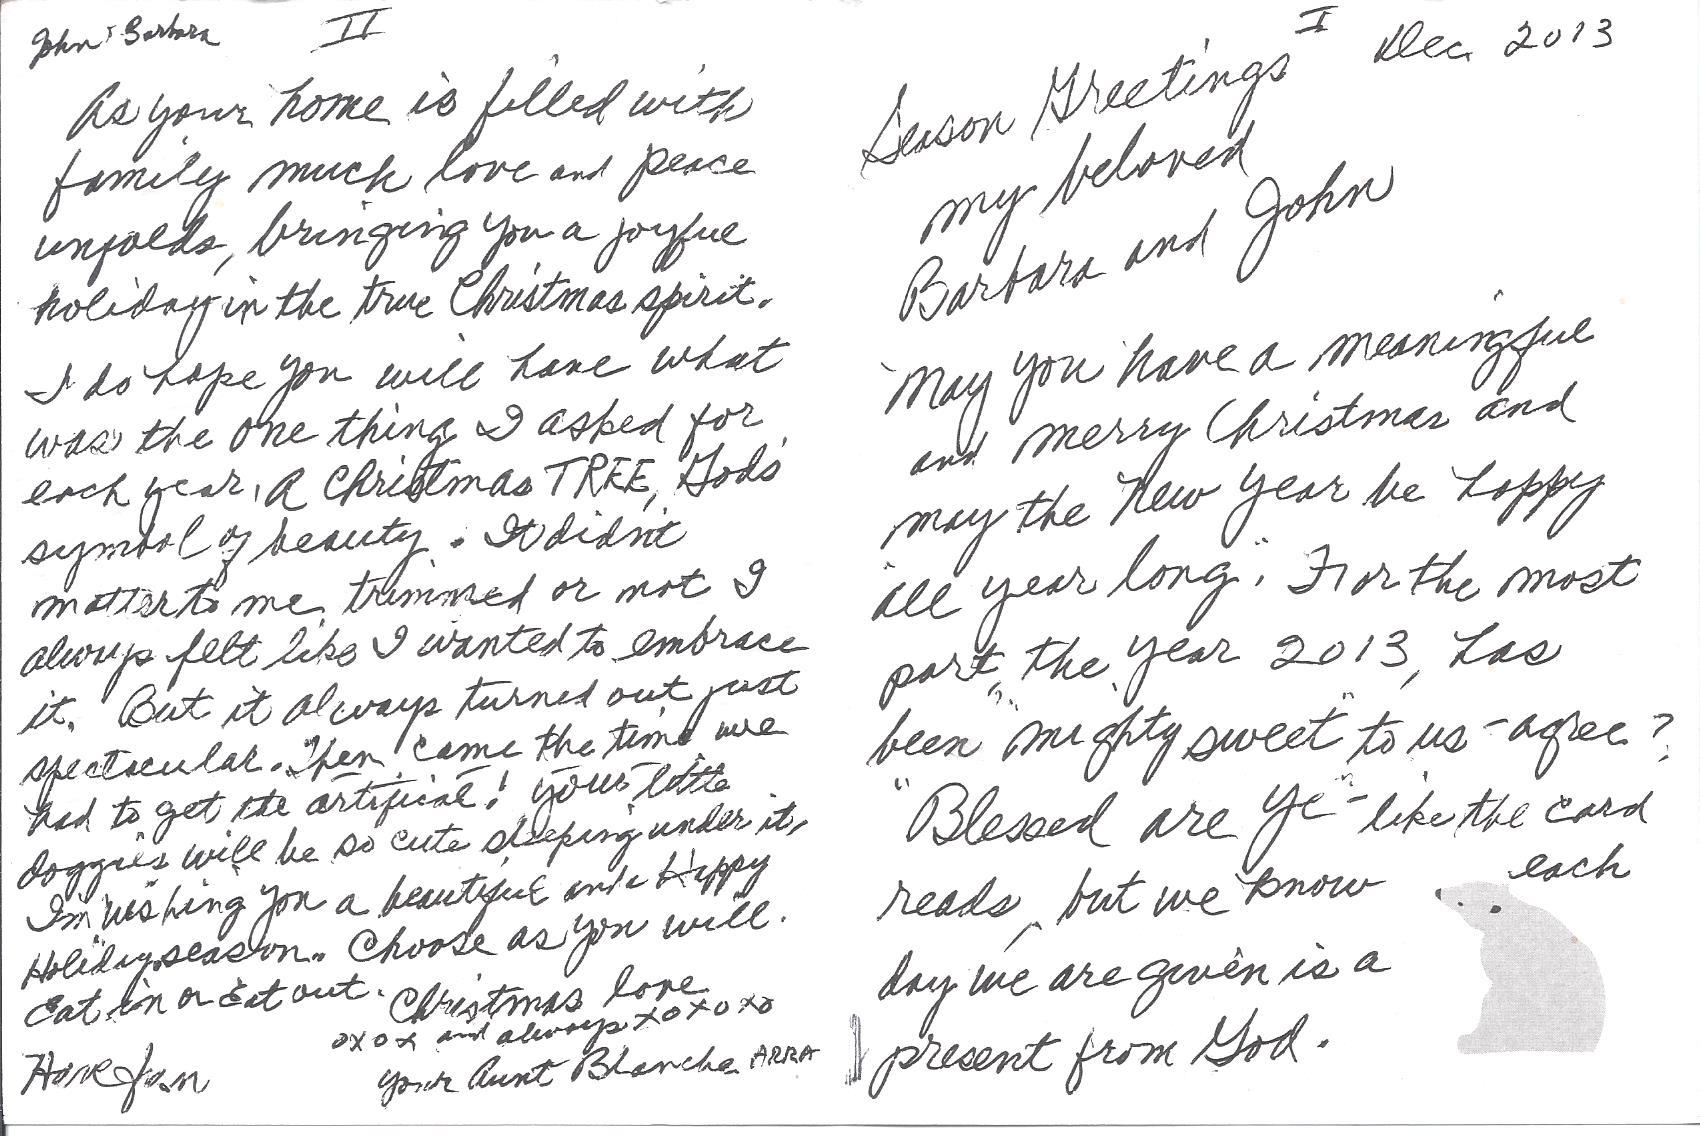 I
Dec. 2013
Season Greetings
my beloved
Barbara and John
"May you have a meaningful
and merry Christmas and
may the New Year be happy
all year long". For the most
part, the year 2013, has
been "mighty sweet" to us - agree?
"Blessed are Ye" - like the card
reads, but we know each
day we are given is a
present from God.
John & Barbara
II
As your home is filled with
family much love and peace
unfolds, bringing you a joyful
holiday in the true Christmas spirit.
I do hope you will have what
was the one thing I asked for
each year, A Christmas TREE, God's
symbol of beauty. It didn't
matter to me trimmed or not I
always felt like I wanted to embrace
it. But it always turned out just
spectacular. Then came the time we
had to get the artificial! Your little
doggies will be so cute sleeping under it,
I'm wishing you a beautiful and a Happy
Holiday season. Choose as you will.
Eat in or Eat out.
Christmas love
oxox and always xoxoxo
Have fun
your Aunt Blanche ARRA